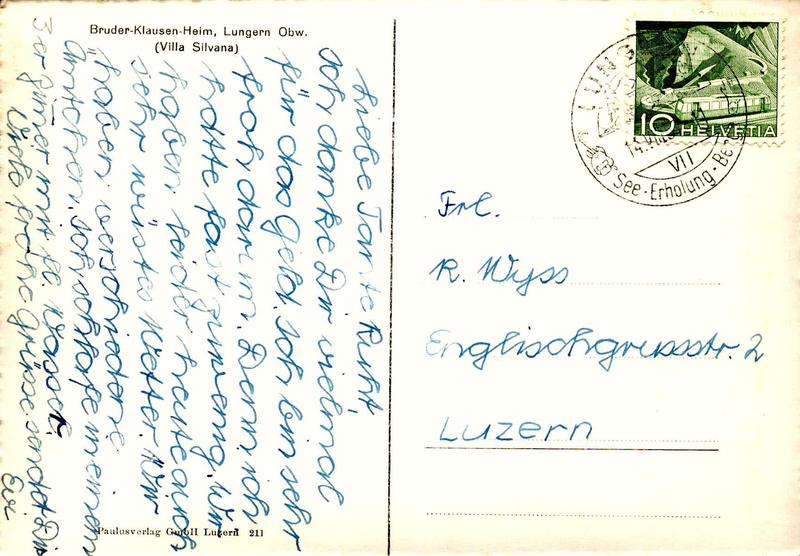 Bruder-Klausen-Heim, Lungern Obw.
(Villa Silvana)
Liebe Tante Ruth,
Ich danke Dir vielmal
für das Geld. Ich bin sehr
froh darum. Denn ich
hatte fast zuwenig. Wir
haben leider heute auch
sehr wüstes Wetter. Wir
haben verschiedene
Ämtchen. Ich schlafe in einem
3er Zimer mit fl. Wasser.
Viele frohe Grüsse sendet Dir
Paulusverlag GmbH Luzern 211
10 HELVETIA
LUNG
VII
See-Erholung-Be
Frl.
R. Wyss
Englischgrussstr. 2
Luzern